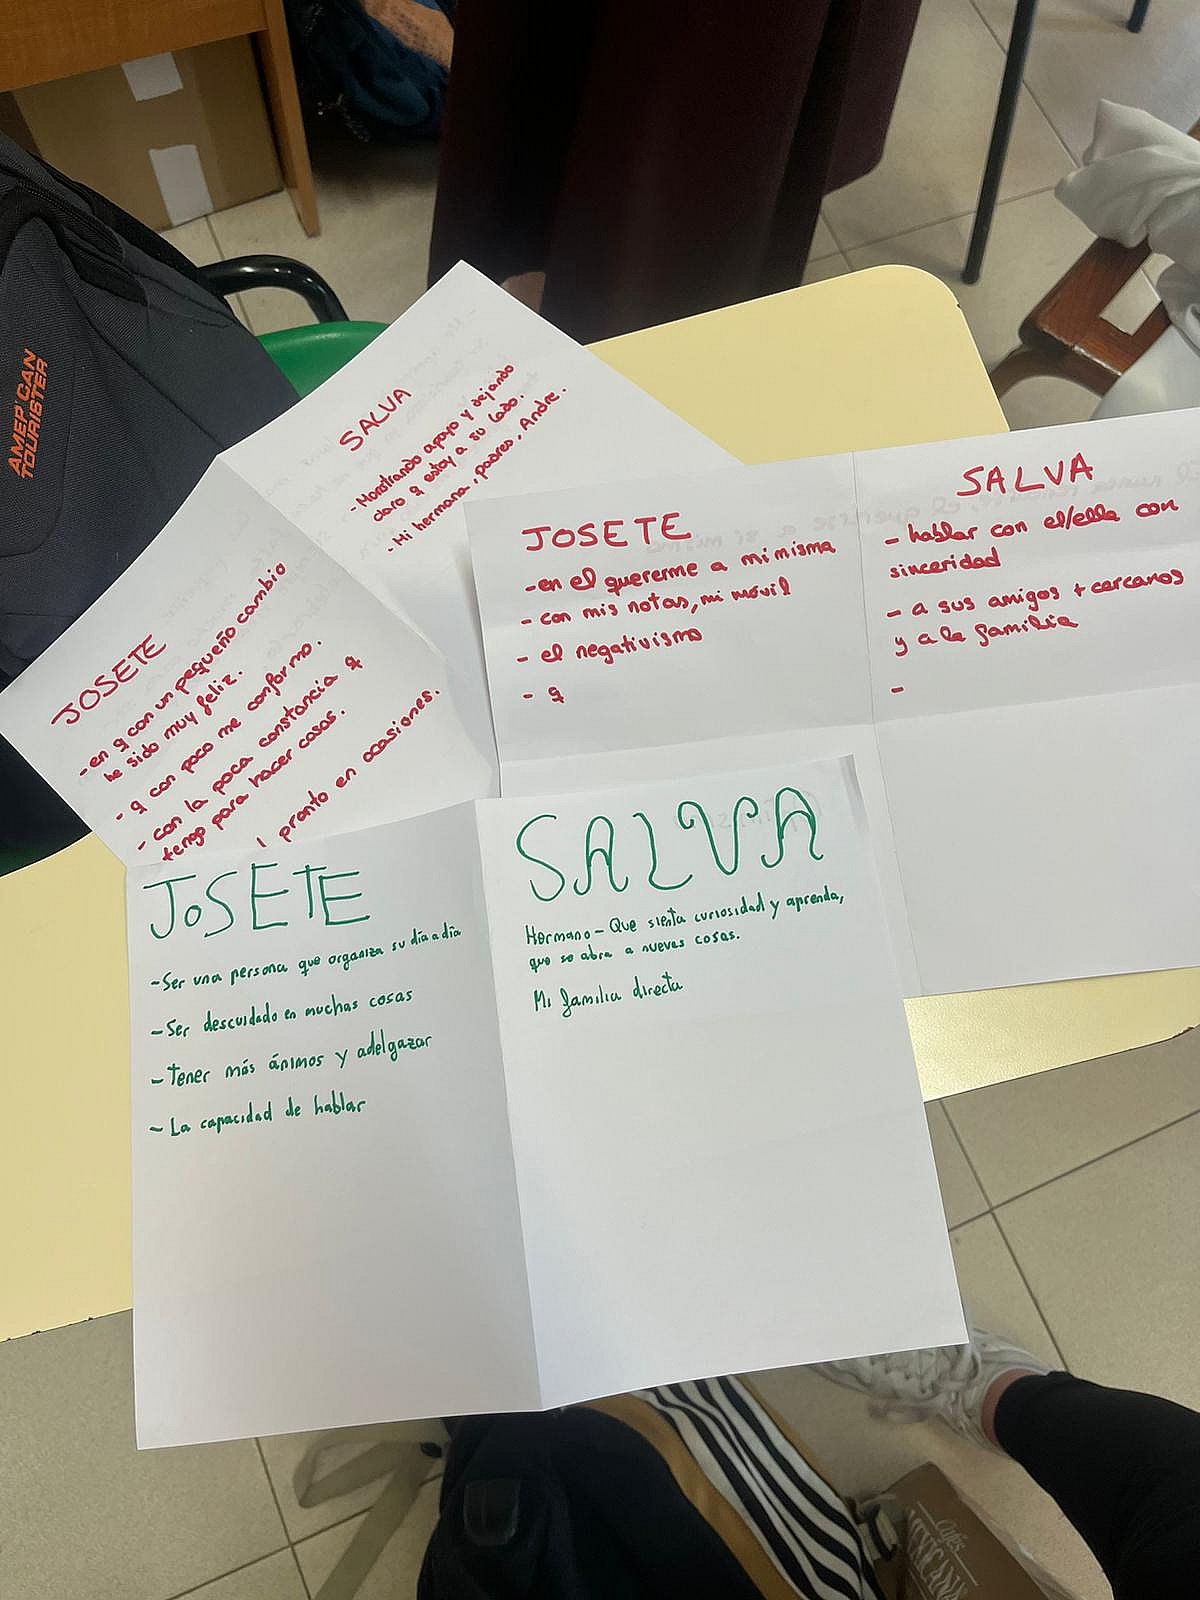 AMERICAN
TOURISTER
SALVA
- Mostrando apoyo y dejando
claro q estoy a su lado.
- Mi hermana, padres, Andre.
JOSETE
- en q con un pequeño cambio
he sido muy feliz.
- q con poco me conformo.
- con la poca constancia q
tengo para hacer cosas.
pronto en ocasiones.
JOSETE
- en el quererme a mi misma
- con mis notas, mi móvil
- el negativismo
- q
SALVA
- hablar con el/ella con
sinceridad
- a sus amigos + cercanos
y a la familia
-
JOSETE
- Ser una persona que organiza su día a día
- Ser descuidado en muchas cosas
- Tener más ánimos y adelgazar
- La capacidad de hablar
SALVA
Hermano - Que sienta curiosidad y aprenda,
que se abra a nuevas cosas.
Mi familia directa
Cafés